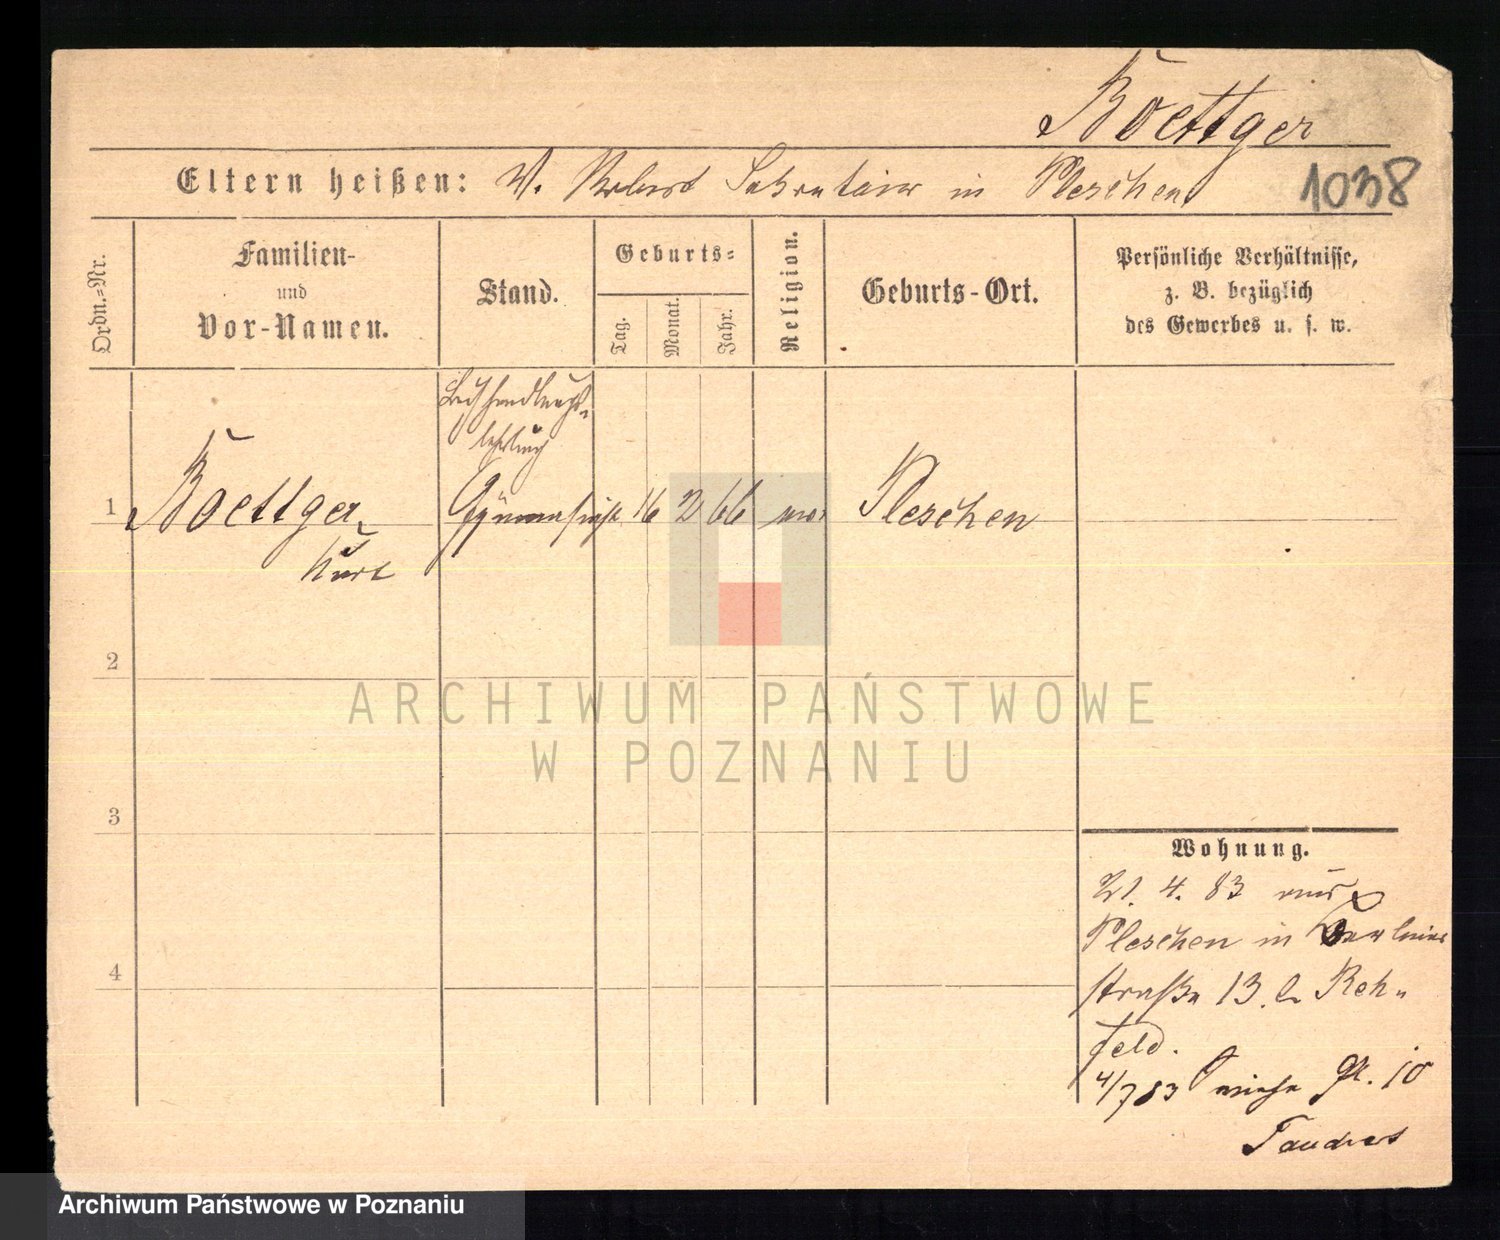 Boettger
Eltern heißen: V. Robert Sekretair in Pleschen
1038
Ordn.=Nr.
Familien-
und
Vor-Namen.
Stand.
Geburts=
Tag.
Monat.
Jahr.
Religion.
Geburts-Ort.
Persönliche Verhältnisse,
z. B. bezüglich
des Gewerbes u. s. w.
Buchhandlungs-
lehrling
1 Boettger, Gymnasiast 16 2 66 Pleschen
Kurt
2
3
4
Wohnung.
21. 4. 83 aus
Pleschen in Berliner
straße 13. b. Reh-
feld.
4/7 83 10
ARCHIWUM PAŃSTWOWE
W POZNANIU
Archiwum Państwowe w Poznaniu